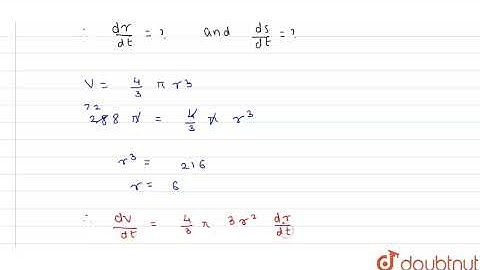 ∴ dr/dt = ? and ds/dt = ?
V = 4/3 π r3
72
288 π = 4/3 π r³
r³ = 216
r = 6
∴ dv/dt = 4/3 π 3r² dr/dt
doubtnut